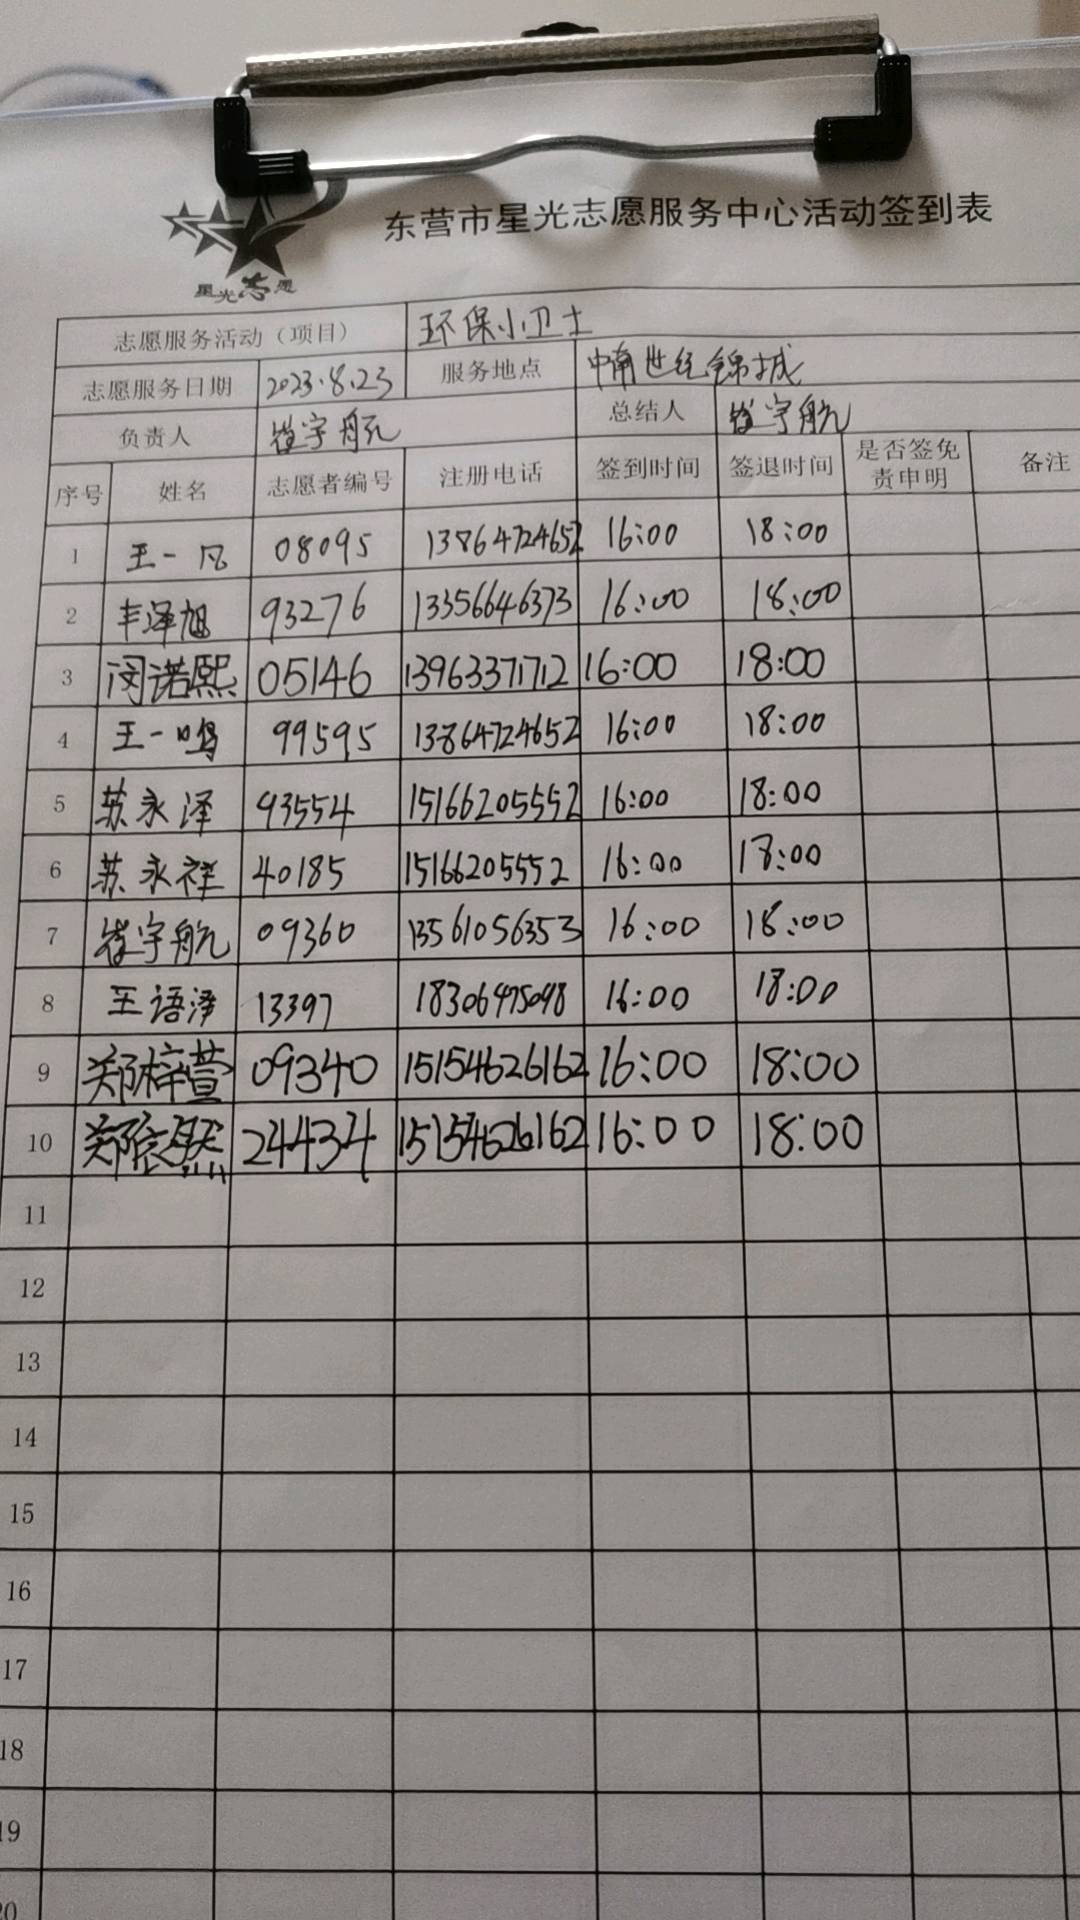 东营市星光志愿服务中心活动签到表
星光志愿
志愿服务活动（项目） 环保小卫士
志愿服务日期 2023.8.23 服务地点 中南世纪锦城
负责人 崔宇航 总结人 崔宇航
序号 姓名 志愿者编号 注册电话 签到时间 签退时间 是否签免责申明 备注
1 王一凡 08095 13864724652 16:00 18:00
2 丰泽旭 93276 13356646373 16:00 18:00
3 闵诺熙 05146 13963371712 16:00 18:00
4 王一鸣 99595 13864724652 16:00 18:00
5 苏永泽 93554 15166205552 16:00 18:00
6 苏永祥 40185 15166205552 16:00 18:00
7 崔宇航 09360 13561056353 16:00 18:00
8 王语泽 13397 18306475098 16:00 18:00
9 郑梓萱 09340 15154626162 16:00 18:00
10 郑 然 24434 15154626162 16:00 18:00
11
12
13
14
15
16
17
18
19
20